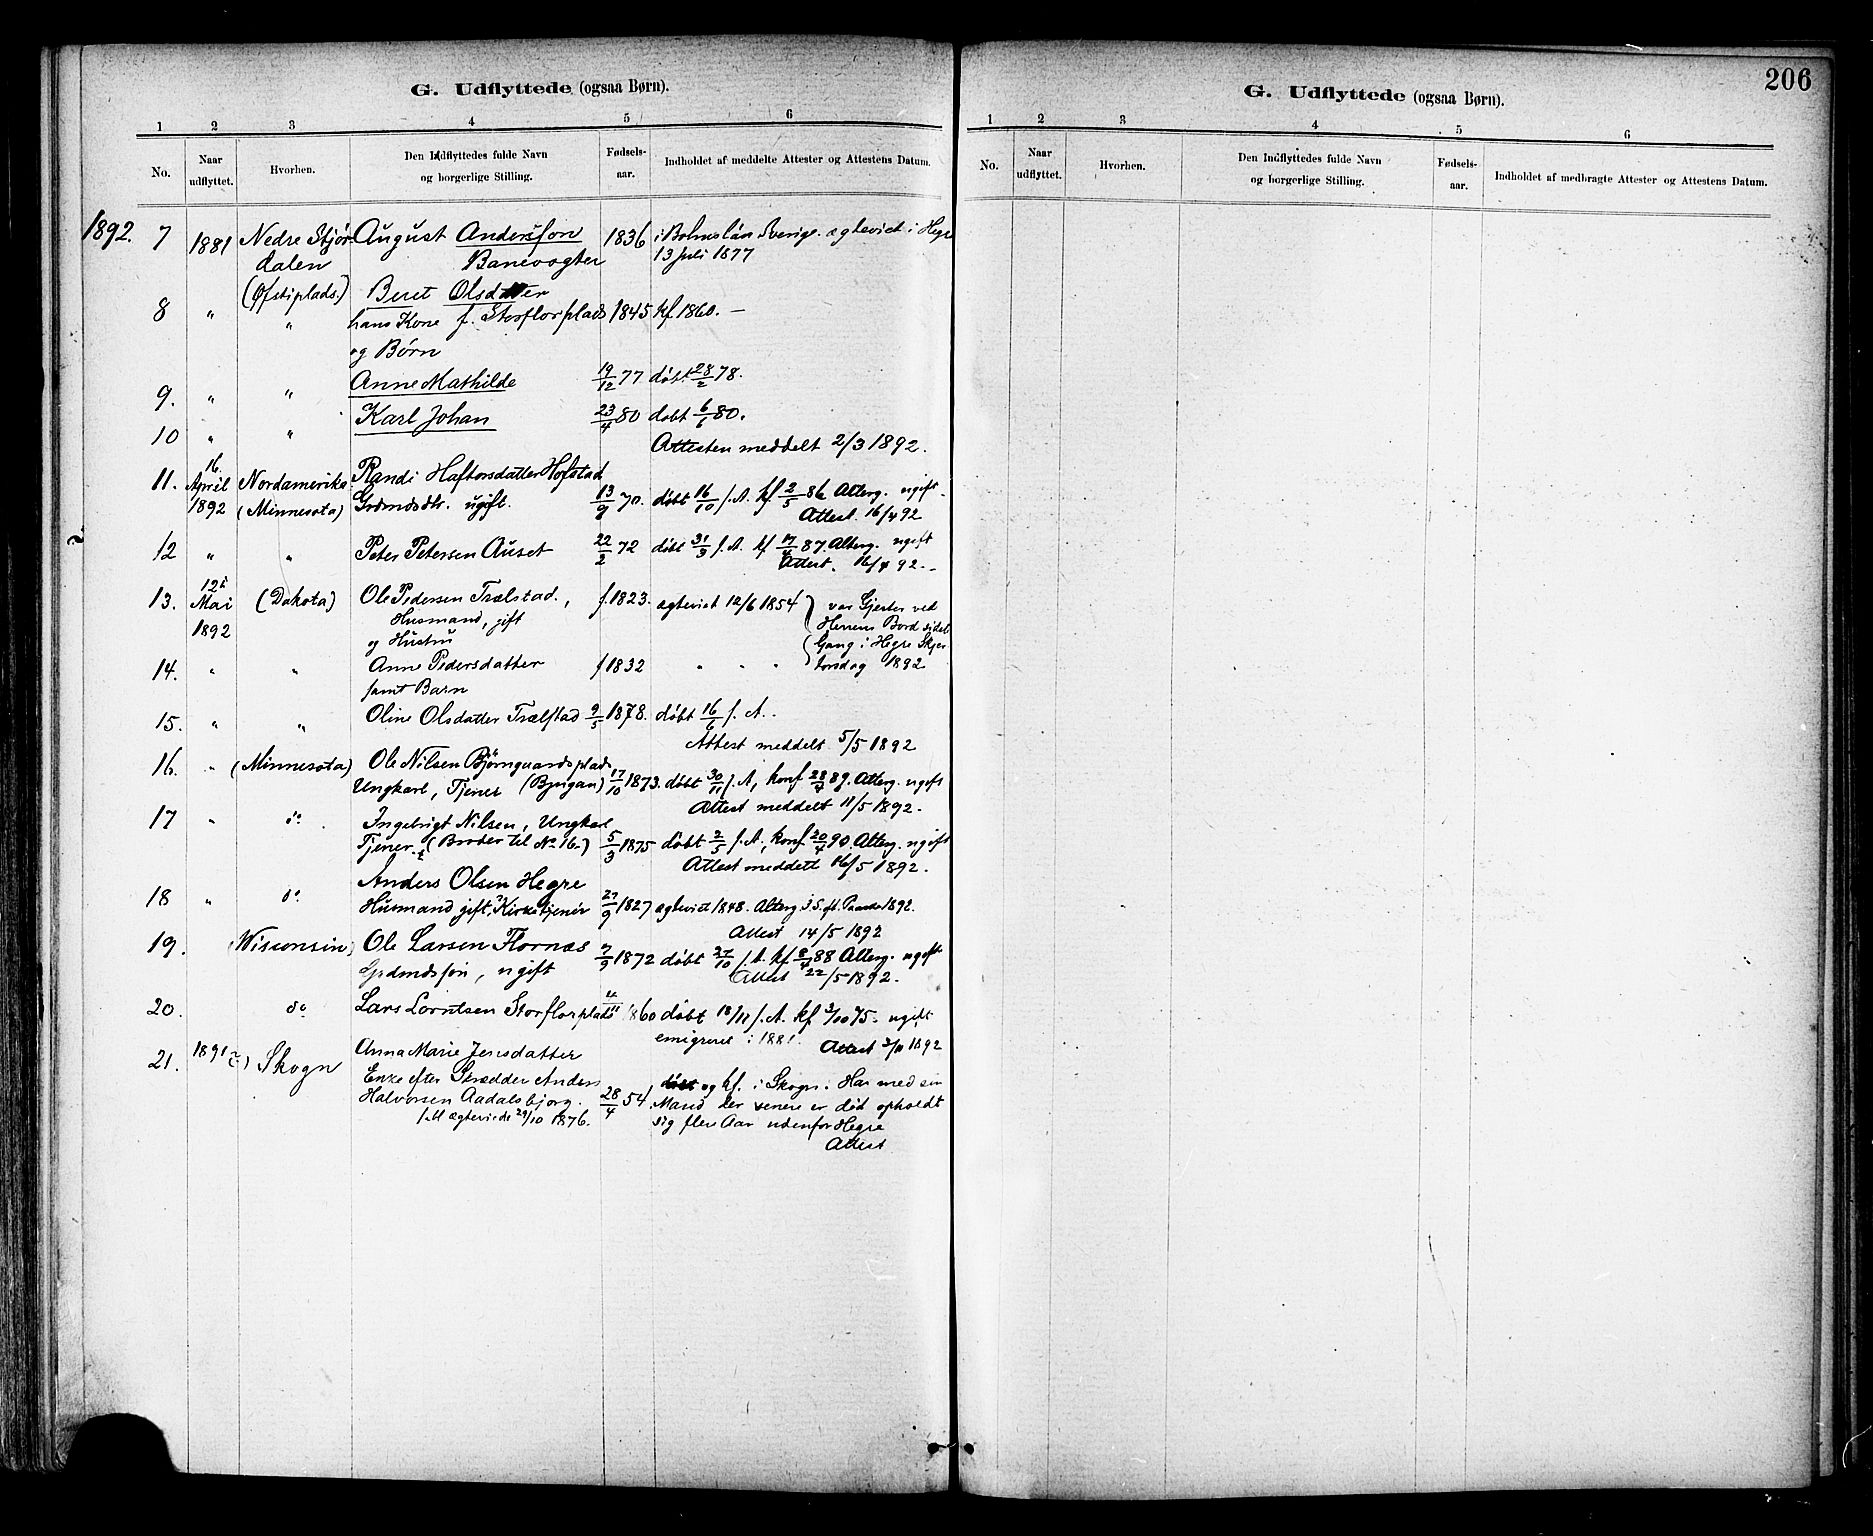 G. Udflyttede (ogsaa Børn).
1 2 3 4 5 6
No. Naar udflyttet. Hvorhen. Den Udflyttedes fulde Navn og borgerlige Stilling. Fødsels-aar. Indholdet af meddelte Attester og Attestens Datum.
1892. 7 1881 Nedre Stjør- August Andersson 1836 i Sverige. ægteviet i Hegre
dalen Banevogter 13 Juli 1877
(Øfstiplads.) Beret Olsdatter
8 " " hans Kone f. Storflorplads 1845 kf 1860. —
og Børn
9. " " Anne Mathilde 19/12 77 døbt 28/2 78.
10 " " Karl Johan 23/4 80 døbt 6/6 80.
Attesten meddelt 2/3 1892.
11. 16. April 1892 Nordamerika Randi Haftorsdatter Hofstad
(Minnesota) Grdmdsdtr. ugift. 13/9 70. døbt 16/10 s. A. kf 2/5 86 Alterg. ugift.
Attest. 16/4 92
12 " " Peter Petersen Auset 22/2 72 døbt 31/3 s. A. kf 17/4 87. Alterg. ugift
Attest. 16/4 92.-
13. 12te Mai 1892 (Dakota) Ole Pedersen Trælstad, f. 1823. ægteviet 12/6 1854 var Gjester ved
Husmand, gift Herrens Bord sidste
og Hustru Gang i Hegre Skjær-
14. " " Anne Pedersdatter f 1832 " " " torsdag 1892
samt Barn
15. " " Oline Olsdatter Trælstad 9/5 1878. døbt 16/6 s. A.
Attest meddelt 5/5 1892
16. " (Minnesota) Ole Nilsen Bjørngaardsplads
Ungkarl, Tjener (Bjugan) 17/10 1873. døbt 30/11 s. A, konf 28/4 89. Alterg. ugift
Attest meddelt 11/5 1892.
17 " do. Ingebrigt Nilsen, Ungkarl
Tjener. (Broder til No 16.) 5/3 1875 døbt 2/5 s. A., konf 20/4 90. Alterg. ugift
Attest meddelt 16/5 1892.
Anders Olsen Hegre
18 " do Husmand gift, Kirketjener 27/9 1827 ægteviet 1848. Alterg. 1892.
Attest 14/5 1892
19. (Wisconsin) Ole Larsen Flornæs 7/9 1872 døbt 27/10 s. A. kf. 8/4 88 Alterg. ugift
Grdmdssøn, ugift Attest 22/5 1892.
20. do Lars Lorntsen Storflorplads 4/11 1860 døbt 18/11 s. A. kf 3/10 75. ugift
emigreret i 1881. Attest 1892
21. 1891 Skogn Anna Marie Jensdatter
Enke efter Skrædder Anders
Halvorsen Aadalsbjørg. 28/4 54. døbt og kf. i Skogn. Har med sin
ægteviede 29/10 1876. Mand der senere er død opholdt
sig flere Aar udenfor Hegre
Attest
206
G. Udflyttede (ogsaa Børn).
1 2 3 4 5 6
No. Naar udflyttet. Hvorhen. Den Indflyttedes fulde Navn og borgerlige Stilling. Fødsels-aar. Indholdet af medbragte Attester og Attestens Datum.